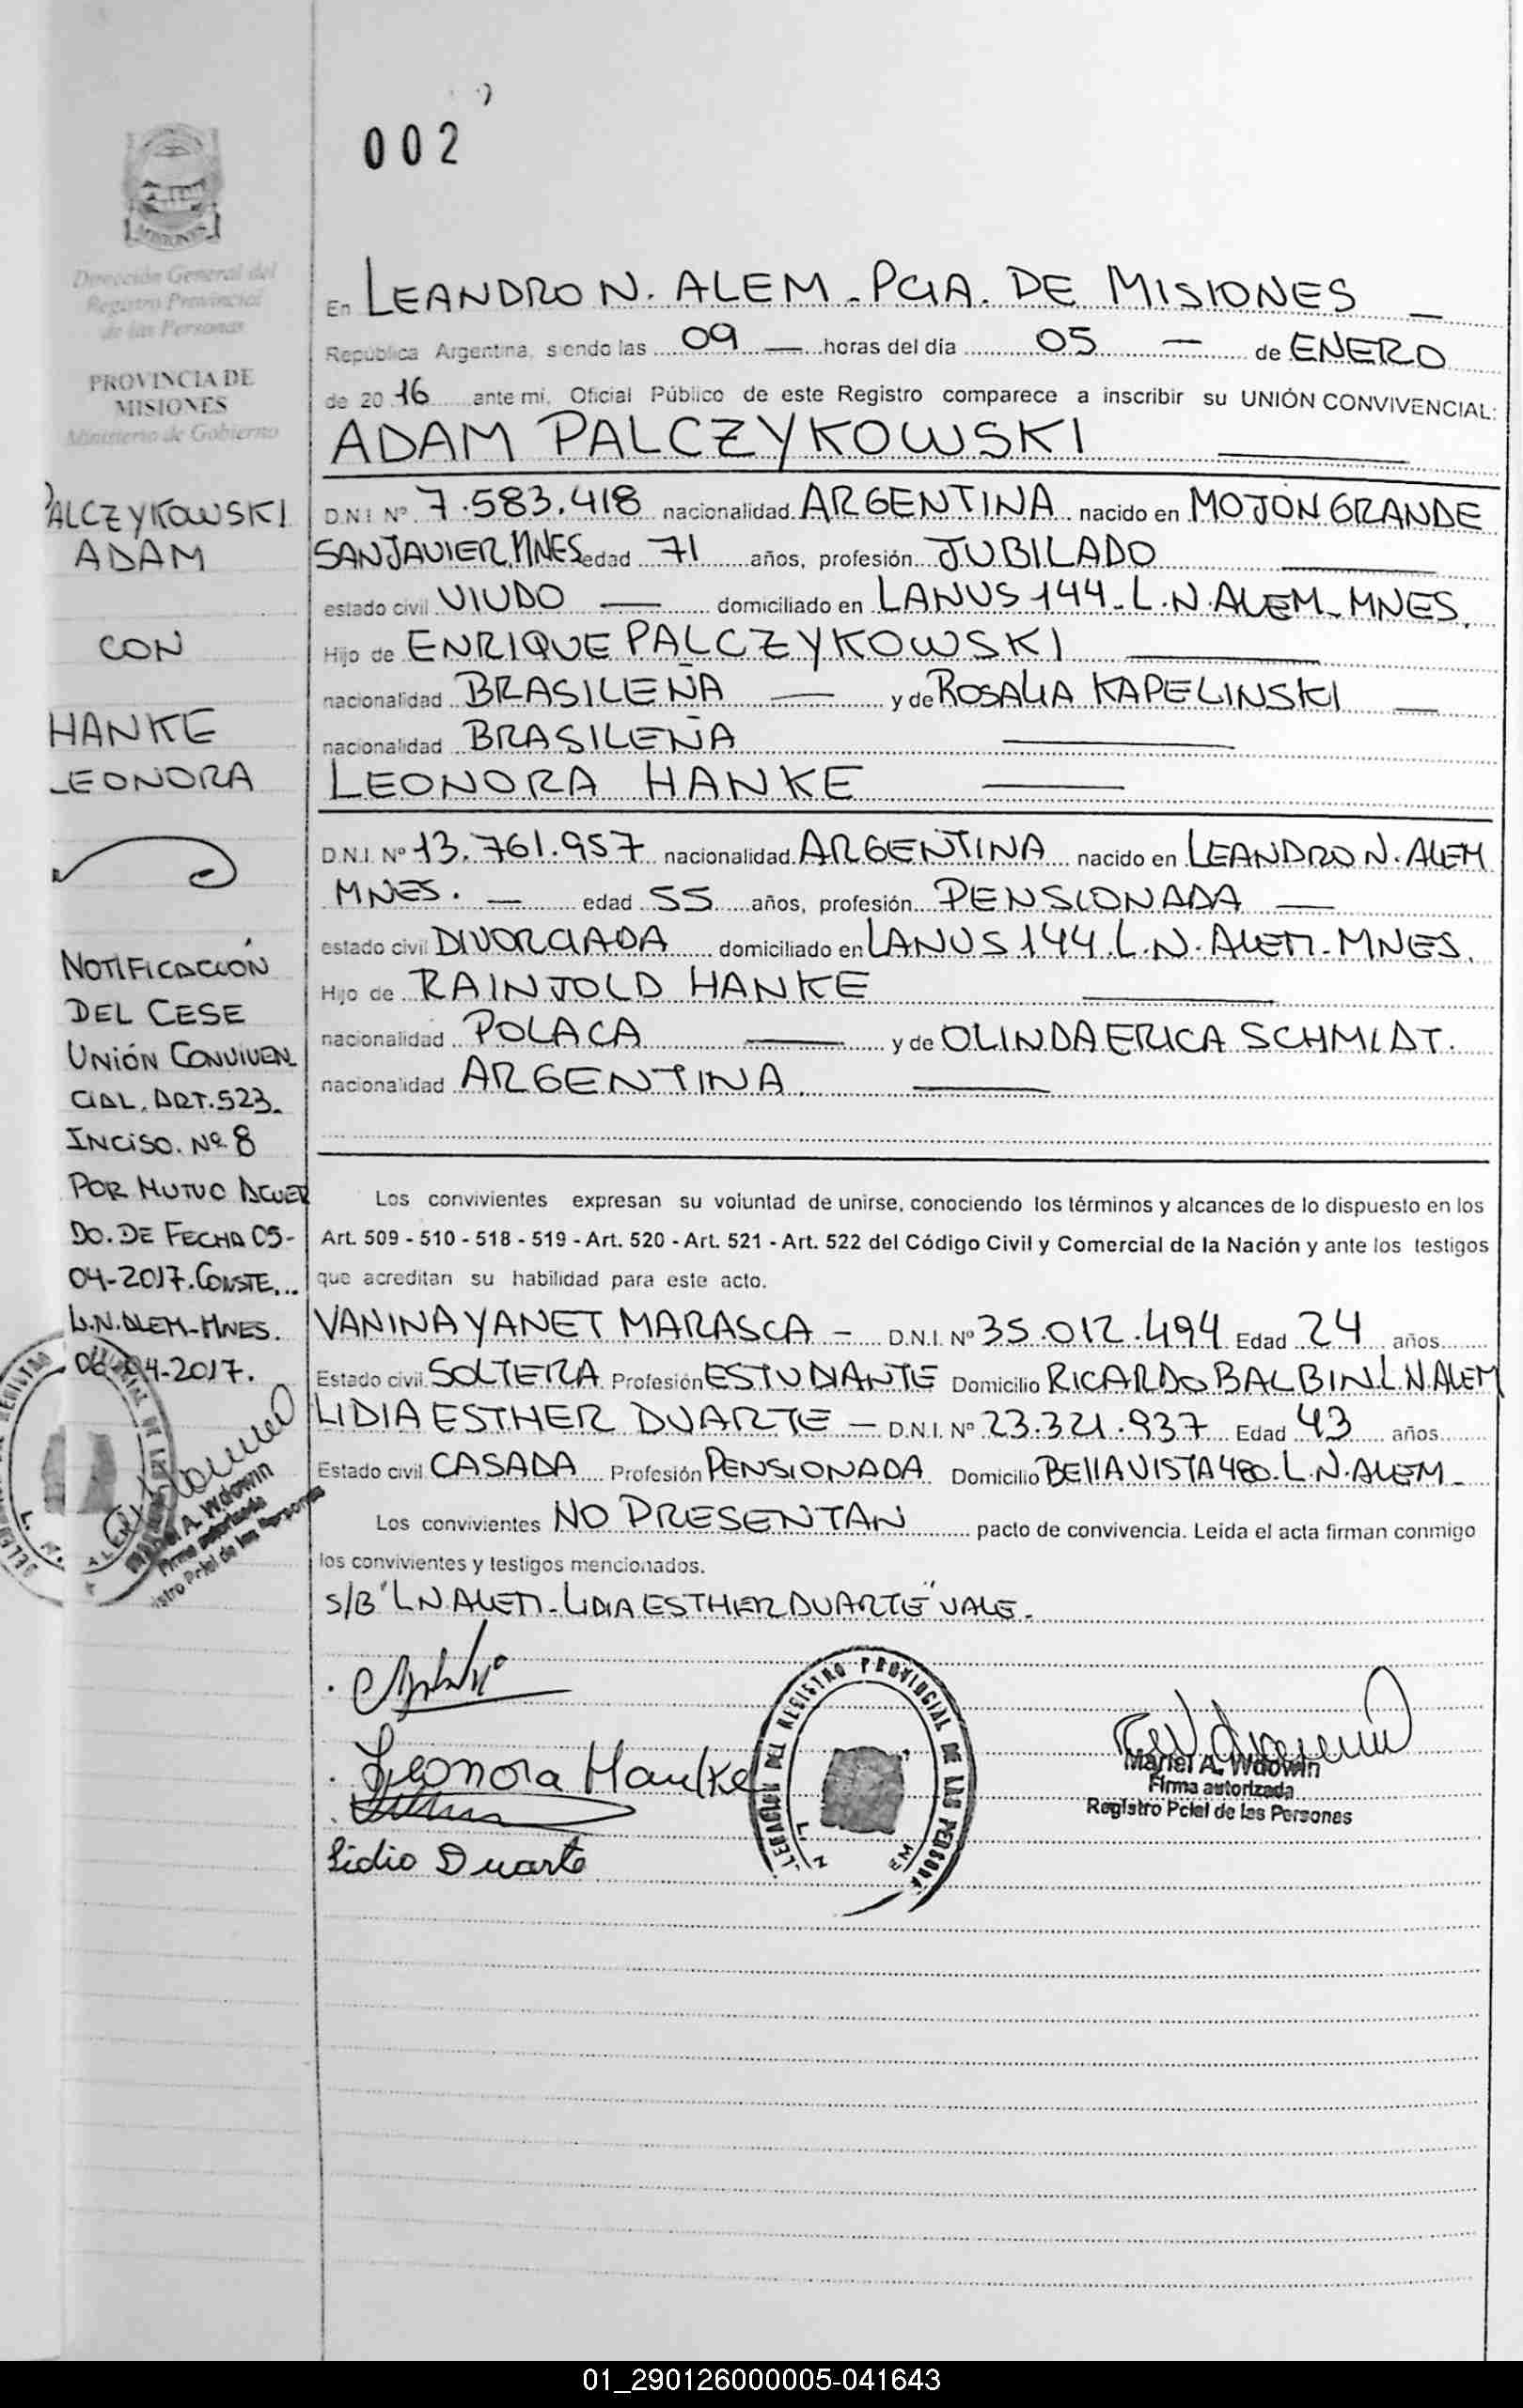 002
MISIONES
Dirección General del
Registro Provincial
de las Personas
PROVINCIA DE
MISIONES
Ministerio de Gobierno
PALCZYKOWSKI
ADAM
CON
HANKE
LEONORA
NOTIFICACIÓN
DEL CESE
UNIÓN CONVIVEN
CIAL. ART. 523.
INCISO. Nº 8
POR MUTUO ACUER
DO. DE FECHA 05-
04-2017. CONSTE...
L.N. ALEM-MNES.
06-04-2017.
En LEANDRO N. ALEM - PCIA. DE MISIONES —
República Argentina, siendo las 09 — horas del día 05 — de ENERO
de 2016 ante mí, Oficial Público de este Registro comparece a inscribir su UNIÓN CONVIVENCIAL:
ADAM PALCZYKOWSKI —
D.N.I. Nº 7.583.418 nacionalidad ARGENTINA nacido en MOJON GRANDE
SAN JAVIER, MNES edad 71 años, profesión JUBILADO —
estado civil VIUDO — domiciliado en LANUS 144 - L.N. ALEM - MNES.
Hijo de ENRIQUE PALCZYKOWSKI —
nacionalidad BRASILEÑA — y de ROSALIA KAPELINSKI —
nacionalidad BRASILEÑA —
LEONORA HANKE —
D.N.I. Nº 13.761.957 nacionalidad ARGENTINA nacido en LEANDRO N. ALEM
MNES. — edad 55 años, profesión PENSIONADA —
estado civil DIVORCIADA domiciliado en LANUS 144. L.N. ALEM - MNES.
Hijo de RAINJOLD HANKE —
nacionalidad POLACA — y de OLINDA ERICA SCHMIDT.
nacionalidad ARGENTINA —
Los convivientes expresan su voluntad de unirse, conociendo los términos y alcances de lo dispuesto en los
Art. 509 - 510 - 518 - 519 - Art. 520 - Art. 521 - Art. 522 del Código Civil y Comercial de la Nación y ante los testigos
que acreditan su habilidad para este acto.
VANINA YANET MARASCA — D.N.I. Nº 35.012.494 Edad 24 años
Estado civil SOLTERA Profesión ESTUDIANTE Domicilio RICARDO BALBIN L.N. ALEM
LIDIA ESTHER DUARTE — D.N.I. Nº 23.321.937 Edad 43 años
Estado civil CASADA Profesión PENSIONADA Domicilio BELLA VISTA 480. L.N. ALEM -
Los convivientes NO PRESENTAN pacto de convivencia. Leída el acta firman conmigo
los convivientes y testigos mencionados.
S/B "L N ALEM - LIDIA ESTHER DUARTE" VALE -
Leonora Hanke
Lidia Duarte
DELEGACION DEL REGISTRO PROVINCIAL DE LAS PERSONAS
Mariel A. Wdowin
Firma autorizada
Registro Pcial de las Personas
Mariel A. Wdowin
Firma autorizada
Registro Pcial de las Personas
01_290126000005-041643